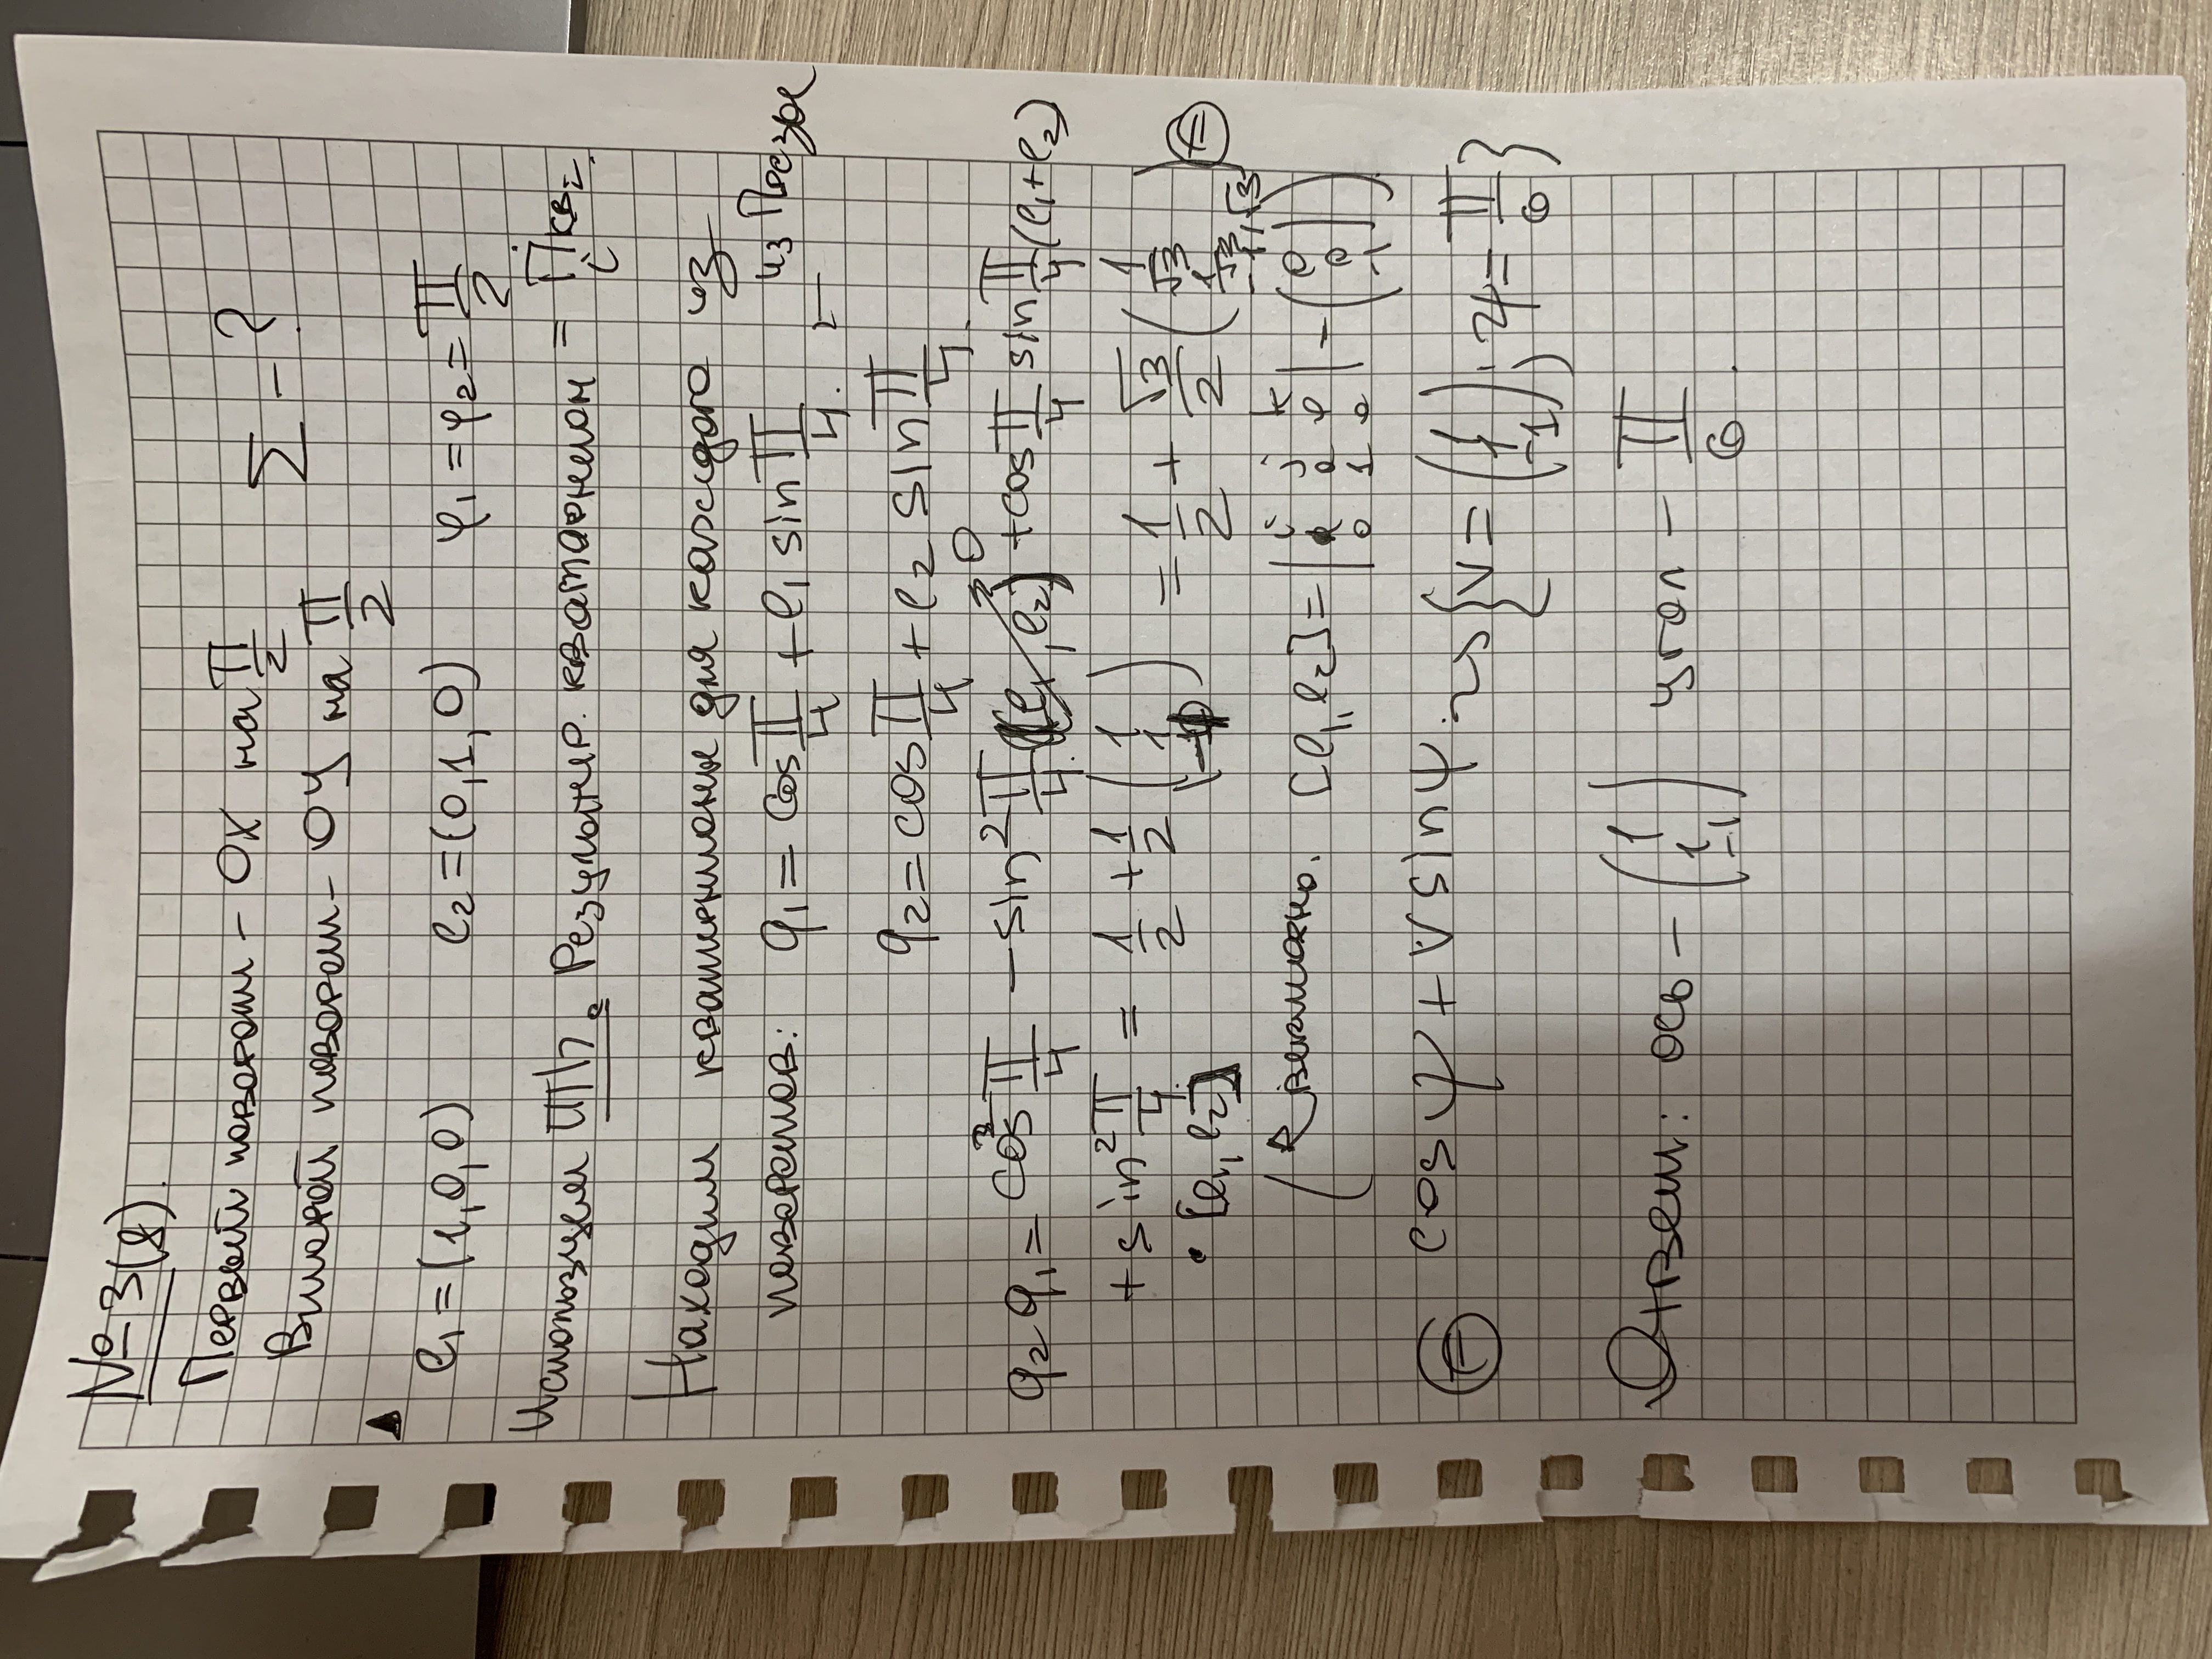 № 3(8).
Первый поворот – OX на π/2
Σ – ?
Второй поворот – OY на π/2
▲
e₁ = (1, 0, 0)    e₂ = (0, 1, 0)    φ₁ = φ₂ = π/2.
Используем Результир. кватернион = ∏ᵢ кв
Находим кватернионы для каждого из
поворотов: q₁ = cos π/4 + e₁ sin π/4.
q₂ = cos π/4 + e₂ sin π/4.
q₂ q₁ = cos² π/4 – sin² π/4 (e₁, e₂) → 0 + cos π/4 sin π/4 (e₁ + e₂)
+ sin² π/4 · [e₁, e₂] = 1/2 + 1/2 (1 1 -1) = 1/2 + √3/2 (1/√3 1/√3 -1/√3) ⊜
( векторно. [e₁, e₂] = | i j k 1 0 0 0 1 0 | – (0 0 -1) )
⊜ cos ψ + v sin ψ. {v = (1 1 -1); ψ = π/6}
Ответ: ось – (1 1 -1) угол – π/6.